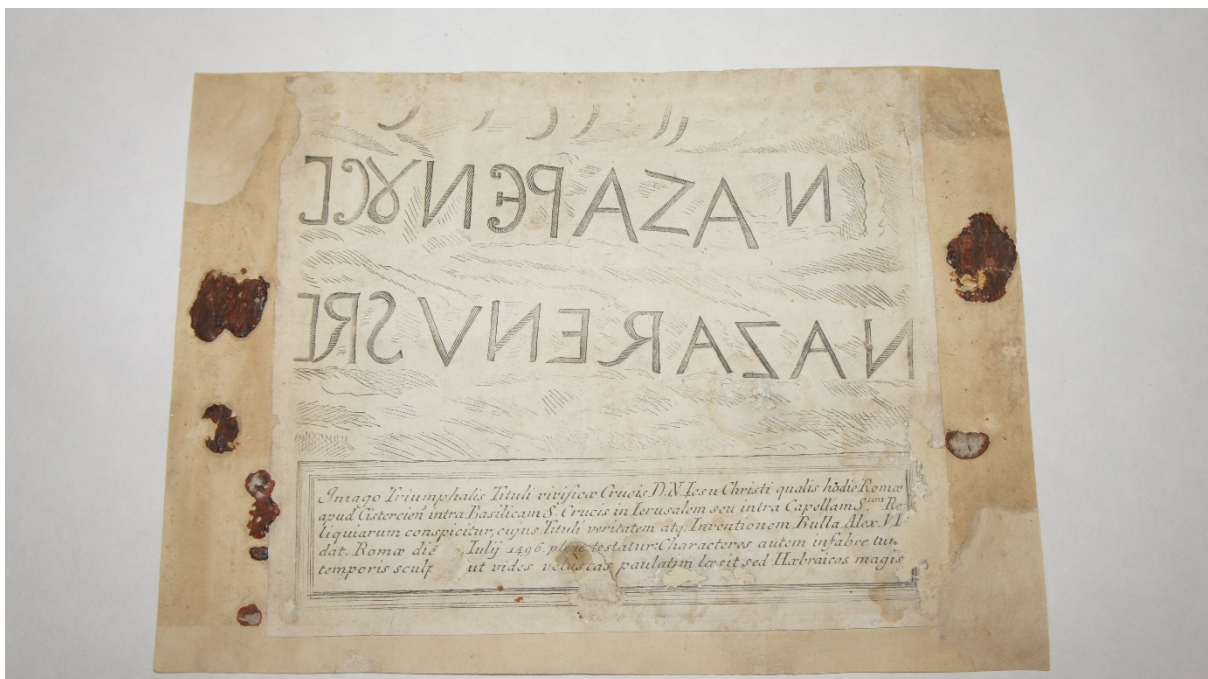 NAZAPENȢC
NAZARENVS R
Imago Triumphalis Tituli vivificæ Crucis D.N.Iesu Christi qualis hodie Romæ
apud Cistercien̄ intra Basilicam S. Crucis in Ierusalem seu intra Capellam S.um Re
liquiarum conspicitur, cujus Tituli veritatem atq. Inventionem Bulla Alex. VI
dat. Romæ die Iulij 1496. plene testatur: Characteres autem infabre tun
temporis sculp ut vides vetustas paulatim læsit sed Hæbraicos magis